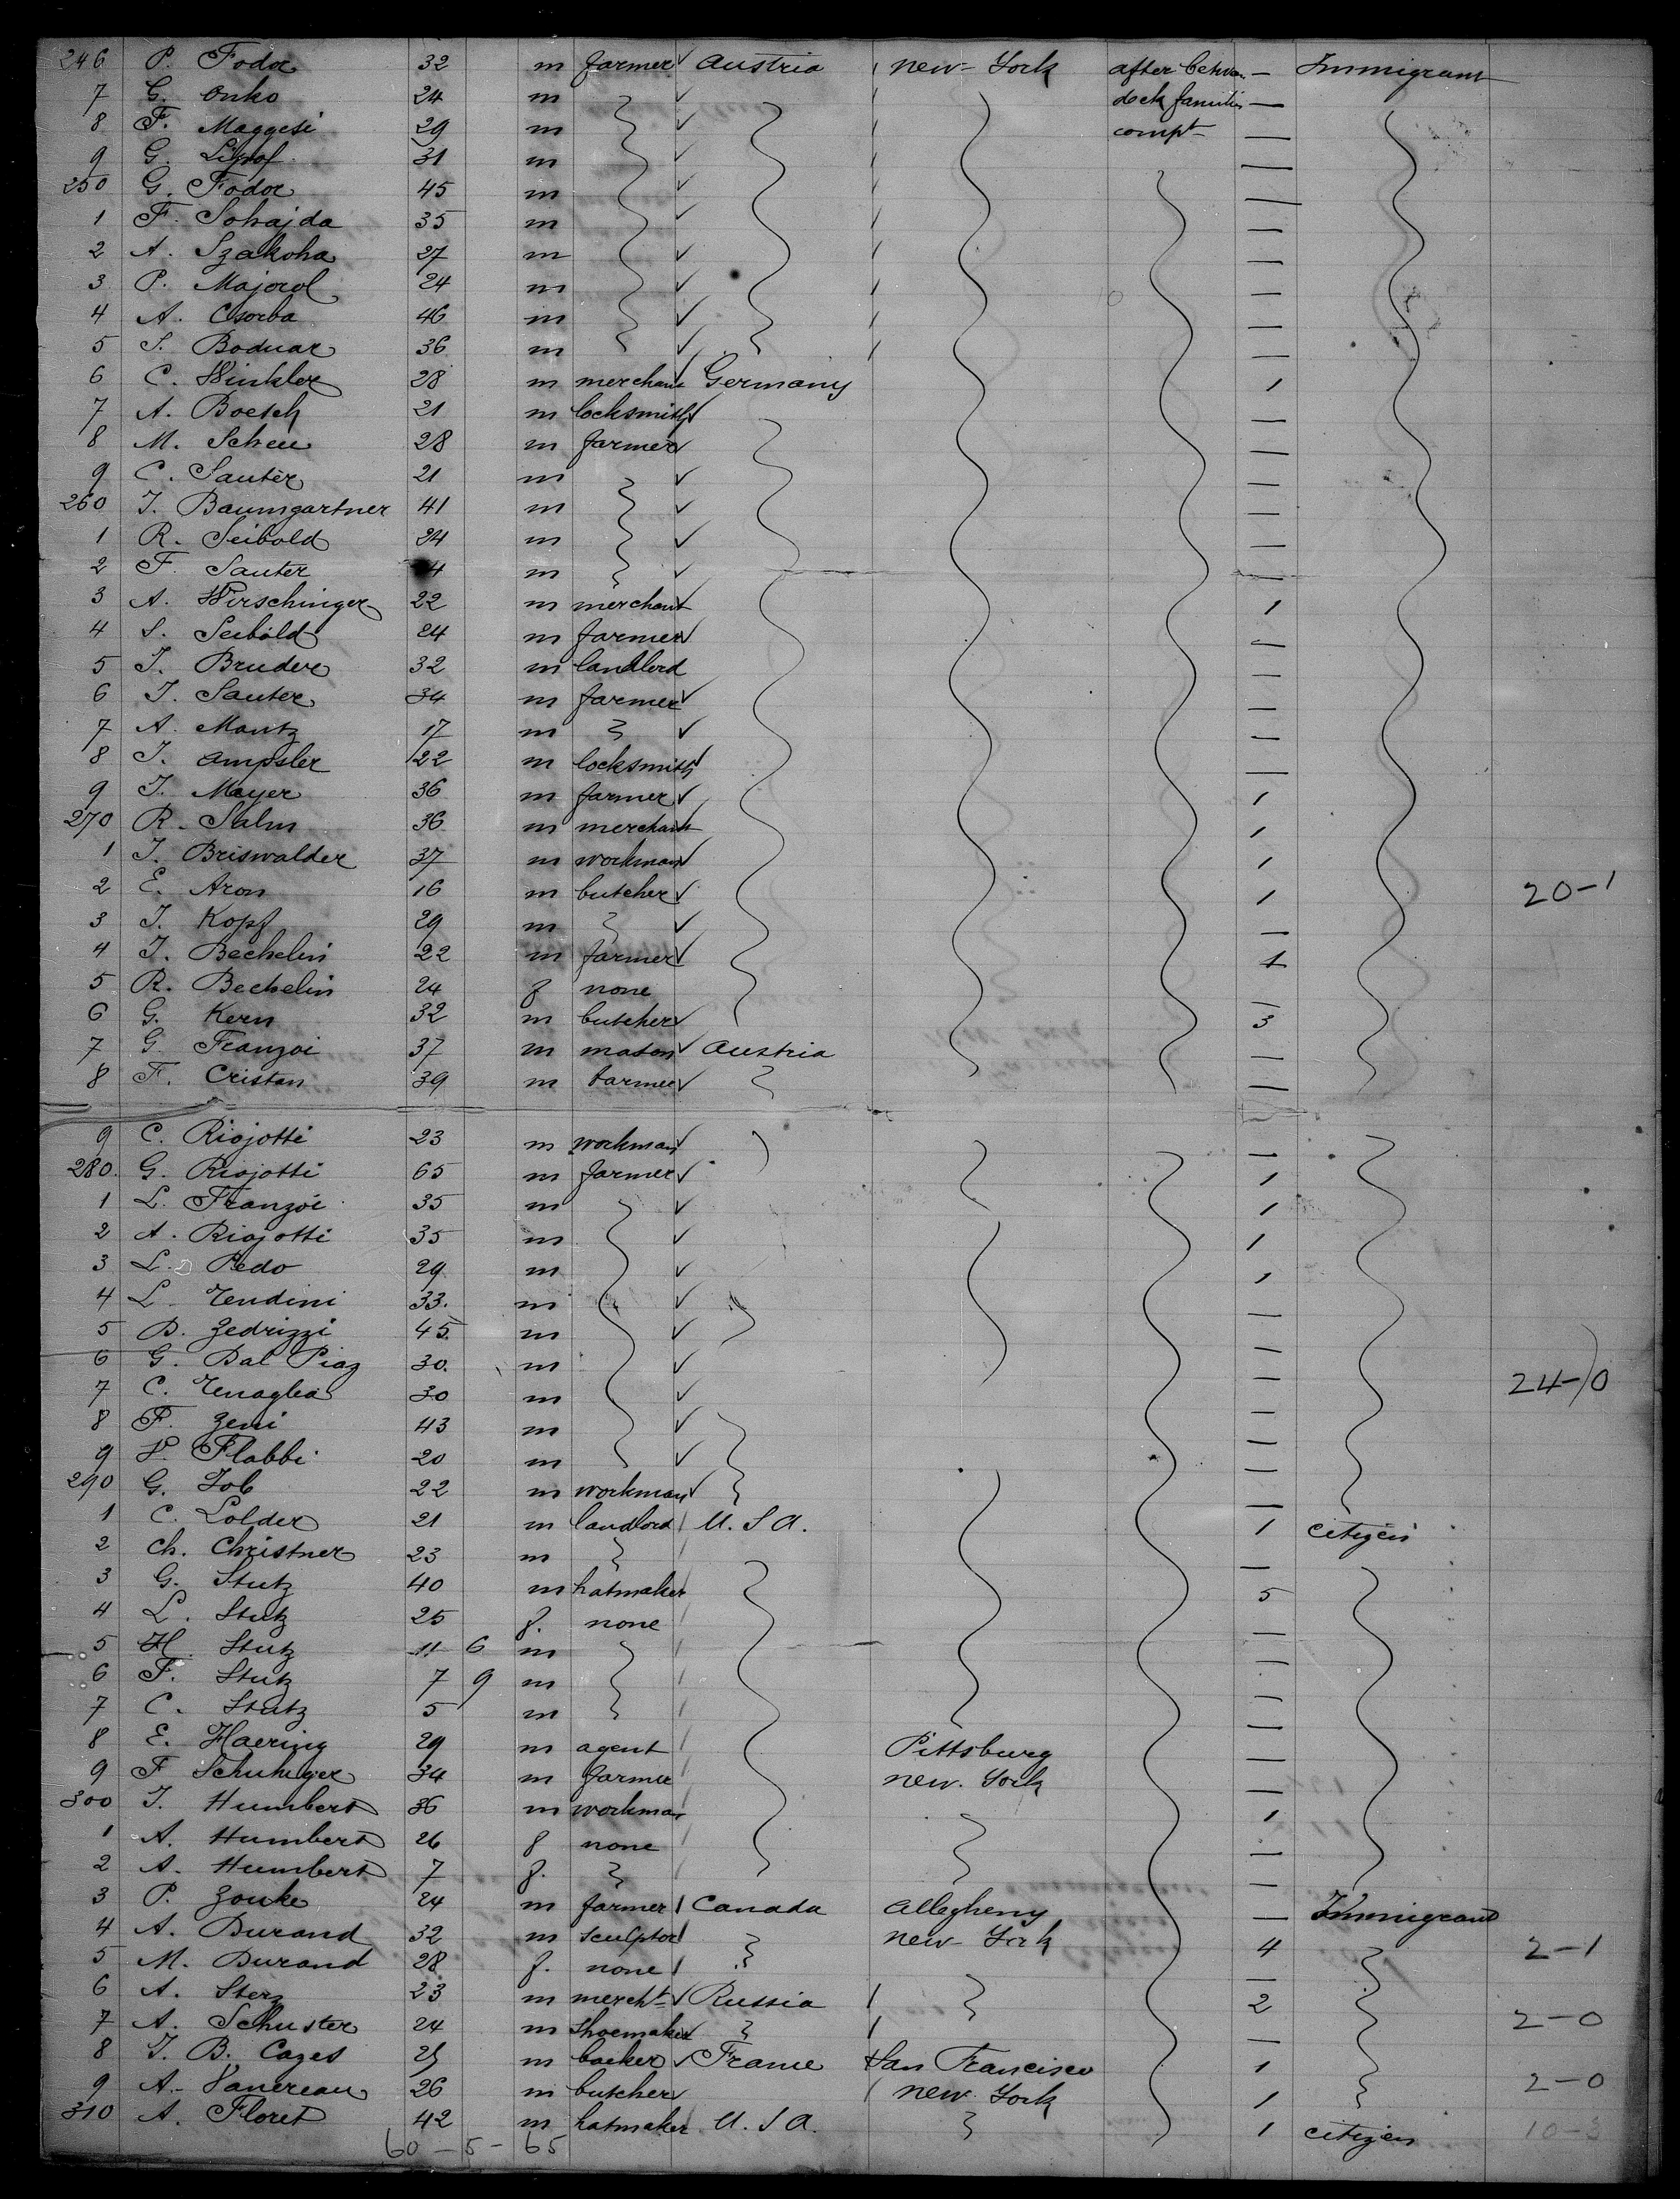 246 P. Fodor 32 m farmer ✓ Austria / New-York after betw. — Immigrant
7 G. Onko 24 m ✓ / deck families —
8 F. Maggesi 29 m ✓ / compt —
9 G. 31 m ✓ / —
250 G. Fodor 45 m ✓ / —
1 F. Sohajda 35 m ✓ / —
2 A. Szakoha 27 m ✓ / —
3 P. Majorol 24 m ✓ / —
4 A. Csorba 46 m ✓ / —
5 S. Boduar 36 m ✓ / —
6 C. Winkler 28 m merchant ✓ Germany 1
7 A. Boesch 21 m locksmith ✓ —
8 M. Scheu 28 m farmer ✓ —
9 C. Sauter 21 m ✓ —
260 J. Baumgartner 41 m ✓ —
1 R. Seibold 24 m ✓ —
2 F. Sauter m ✓ —
3 A. Wirschinger 22 m merchant ✓ 1
4 S. Seibold 24 m farmer ✓ —
5 J. Bruder 32 m landlord —
6 J. Sauter 34 m farmer ✓ —
7 A. Mantz 17 m ✓ —
8 J. Ampsler 22 m locksmith ✓ —
9 J. Meyer 36 m farmer ✓ 1
270 R. Salm 36 m merchant 1
1 J. Briswalder 37 m workman ✓ 1
2 E. Aron 16 m butcher ✓ 1 20-1
3 J. Kopf 29 m ✓ —
4 J. Bechelin 22 m farmer ✓ 1
5 R. Bechelin 24 f none —
6 G. Kern 32 m butcher ✓ 3
7 G. Franzoi 37 m mason ✓ Austria —
8 F. Cristan 39 m farmer ✓ —
9 C. Riojotti 23 m workman ✓ —
280. G. Riojotti 65 m farmer ✓ 1
1 L. Franzoi 35 m ✓ 1
2 A. Riojotti 35 m ✓ 1
3 L. Pedo 29 m ✓ 1
4 L. Tendini 33. m ✓ —
5 B. Zedrizzi 45. m ✓ —
6 G. Dal Piaz 30. m ✓ —
7 C. Tenaglia 30 m ✓ — 24-0
8 F. Zeni 43 m ✓ —
9 Flabbi 20 m ✓ —
290 G. Job 22 m workman ✓ —
1 C. Lolder 21 m landlord / U. S A. 1 citizen
2 Ch. Christner 23 m / —
3 G. Stutz 40 m hatmaker 5
4 L. Stutz 25 f. none / —
5 H. Stutz 11 6 m / —
6 F. Stutz 7 9 m / —
7 C. Stutz 5 m / —
8 E. Haering 29 m agent / Pittsburg —
9 F Schuhger 34 m farmer New. York —
300 J. Humbert 36 m workman 1
1 A. Humbert 26 f none / —
2 A. Humbert 7 f. / —
3 P. Zouke 24 m farmer / Canada Allegheny — Immigrant
4 A. Durand 32 m sculptor / New-York 4 2-1
5 M. Durand 28 f. none / —
6 A. Sterz 23 m mercht ✓ Russia / 2
7 A. Schuster 24 m shoemaker ✓ / — 2-0
8 J. B. Cazes m backer ✓ France San Francisco 1
9 A. 26 m butcher ✓ / New. York 1 2-0
310 A. Floret 42 m hatmaker U. S A. 1 citizen 10-3
60 - 5 - 65